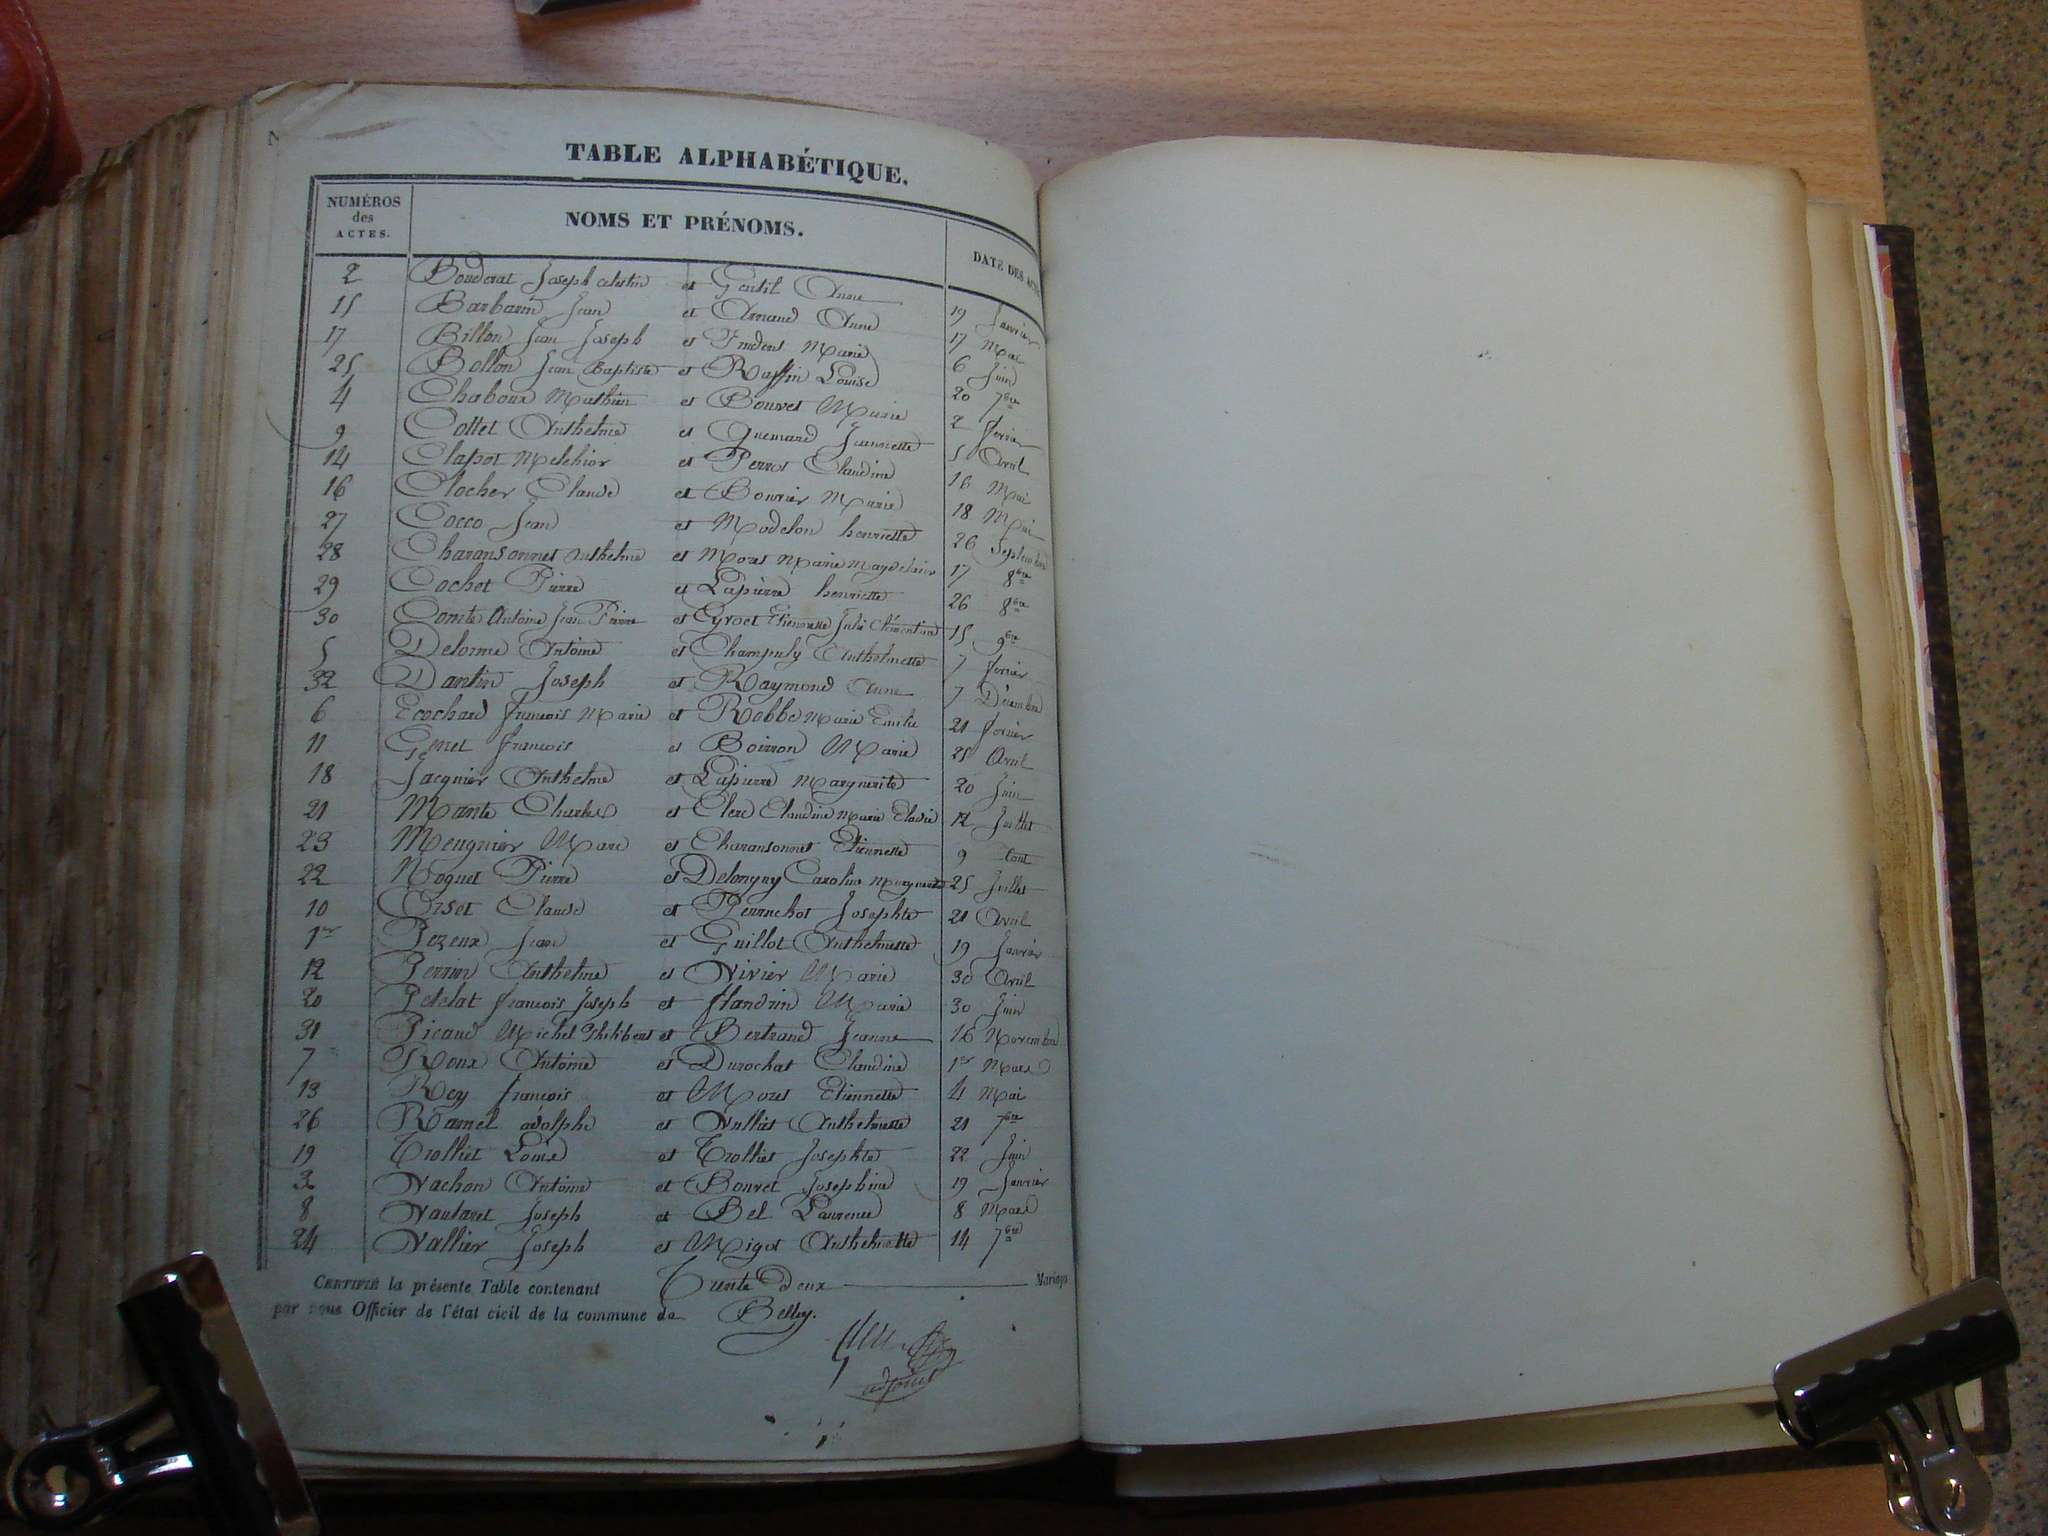 TABLE ALPHABÉTIQUE.
NUMÉROS des ACTES. NOMS ET PRÉNOMS. DATE DES
2 Bouderat Joseph celestin et Gentil Anne 19 Janvier
15 Barbarin Jean et Arnaud Anne 17 Mai
17 Billon Jean Joseph et Marie 6 Juin
25 Bollon Jean Baptiste et Raffin Louise 20 7bre
4 Chaboux Mathieu et Bouvet Marie 2 fevrier
9 Collet Anthelme et Jeannette 5 Avril
14 Clapot Melchior et Perrot Claudine 16 Mai
16 Clocher Claude et Bouvier Marie 18 Mai
27 Cocco Jean et Modelon henriette 26 Septembre
28 Charansonnet Anthelme et Moret Marie Magdelaine 17 8bre
29 Cochet Pierre et Lapierre henriette 26 8bre
30 Comte Antoine Jean Pierre et Etiennette Julie Clémentine 15 9bre
5 Delorme Antoine et Anthelmette 7 fevrier
32 Dantin Joseph et Raymond Anne 7 Décembre
6 Ecochard francois Marie et Robbe Marie Emilie 21 fevrier
11 Genet francois et Boirron Marie 25 Avril
18 Jacquier Anthelme et Lapierre Marguerite 20 Juin
21 Mante Charles et Clerc Claudine Marie Elodie 12 Juillet
23 Meugnier Marc et Charansonnet Etiennette 9 Aout
22 Noguet Pierre et Caroline Marguerite 25 Juillet
10 Orset Claude et Perruchot Josephte 21 Avril
1er Pezeux Jean et Guillot Anthelmette 19 Janvier
12 Perrin Anthelme et Vivier Marie 30 Avril
20 Pelelat francois Joseph et flandrin Marie 30 Juin
31 Picaud Michel Philibert et Bertrand Jeanne 16 Novembre
7 Roux Antoine et Durochat Claudine 1er Mars
13 Rey francois et Moret Etiennette 4 Mai
26 Ramel adolphe et Vulliet Anthelmette 21 7bre
19 Trolliet Louis et Trolliet Josephte 22 Juin
3 Vachon Antoine et Bouvet Josephine 19 Janvier
8 Vautaret Joseph et Bel Laurence 8 Mars
24 Vallier Joseph et Migot Anthelmette 14 7bre
CERTIFIÉ la présente Table contenant Trente deux Mariages
par nous Officier de l'état civil de la commune de Belley.
adjoint